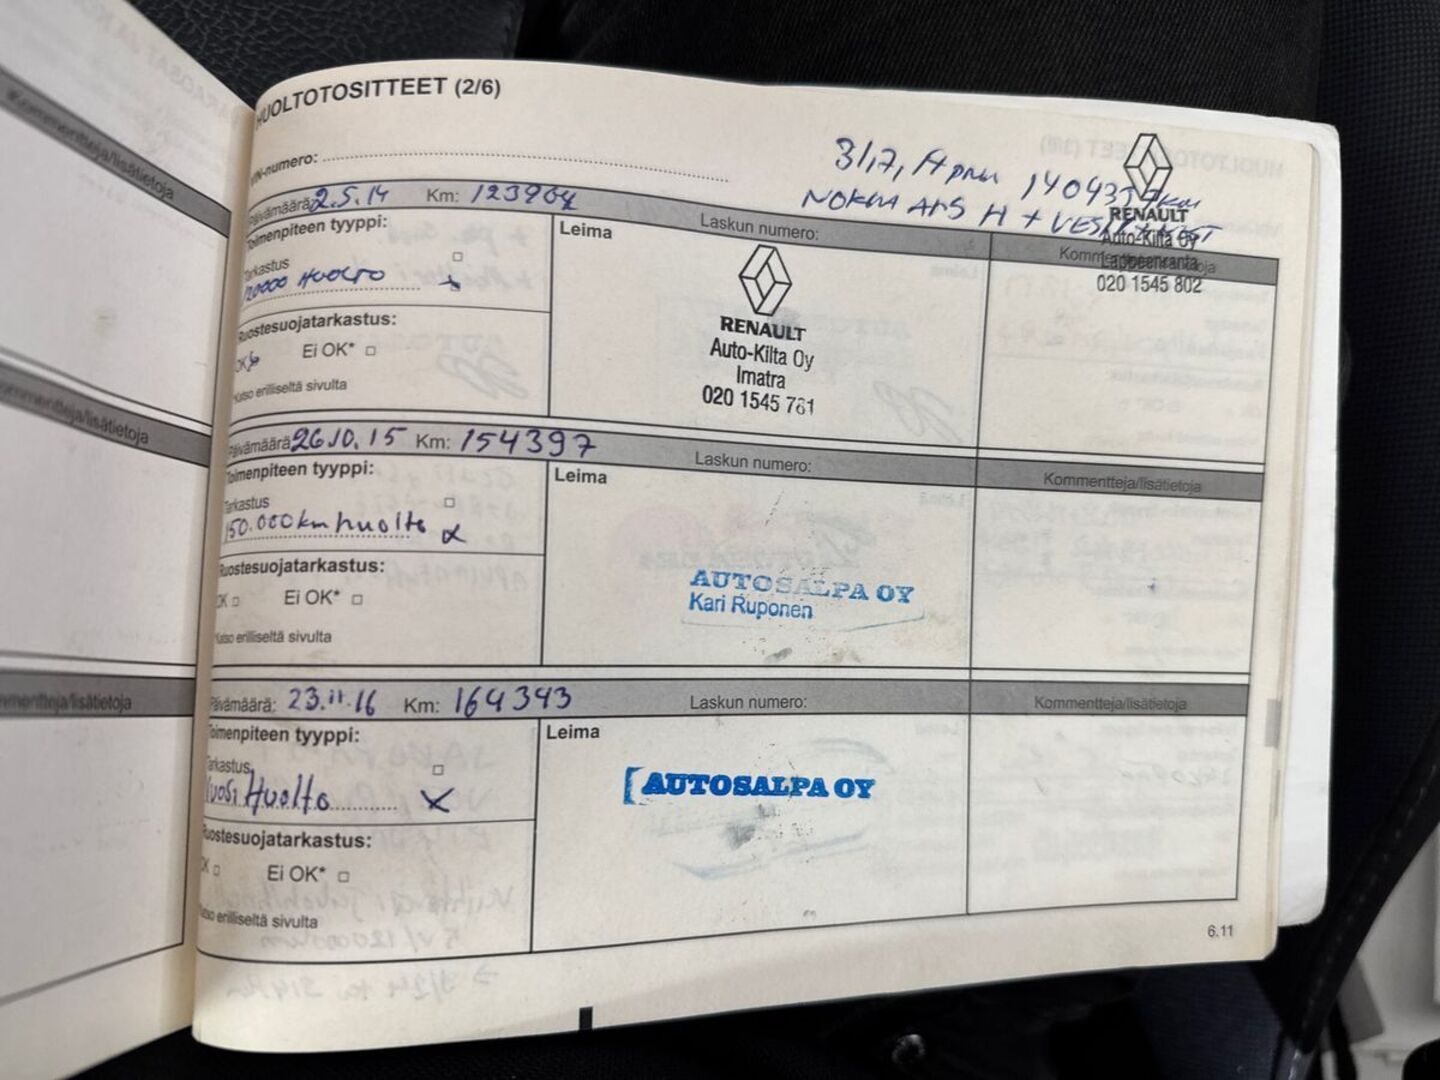 HUOLTOTOSITTEET (2/6)
VIN-numero:
140435 km
NOKKA AMS H + VESIP
RENAULT
Auto-Kilta Oy
Lappeenranta
020 1545 802
Päivämäärä 2.5.14 Km: 123904 Laskun numero:
Toimenpiteen tyyppi:
Tarkastus
120000 HUOLTO x
Ruostesuojatarkastus:
OK Ei OK*
*Katso erilliseltä sivulta
Leima
RENAULT
Auto-Kilta Oy
Imatra
020 1545 761
Kommentteja/lisätietoja
Päivämäärä 26.10.15 Km: 154397 Laskun numero: Kommentteja/lisätietoja
Toimenpiteen tyyppi:
Tarkastus
150.000 km huolto x
Ruostesuojatarkastus:
OK Ei OK*
*Katso erilliseltä sivulta
Leima
AUTOSALPA OY
Kari Ruponen
Päivämäärä: 23.11.16 Km: 164343 Laskun numero: Kommentteja/lisätietoja
Toimenpiteen tyyppi:
Tarkastus
Vuosi Huolto x
Ruostesuojatarkastus:
OK Ei OK*
*Katso erilliseltä sivulta
Leima
AUTOSALPA OY
6.11
Kommentteja/lisätietoja
Kommentteja/lisätietoja
Kommentteja/lisätietoja